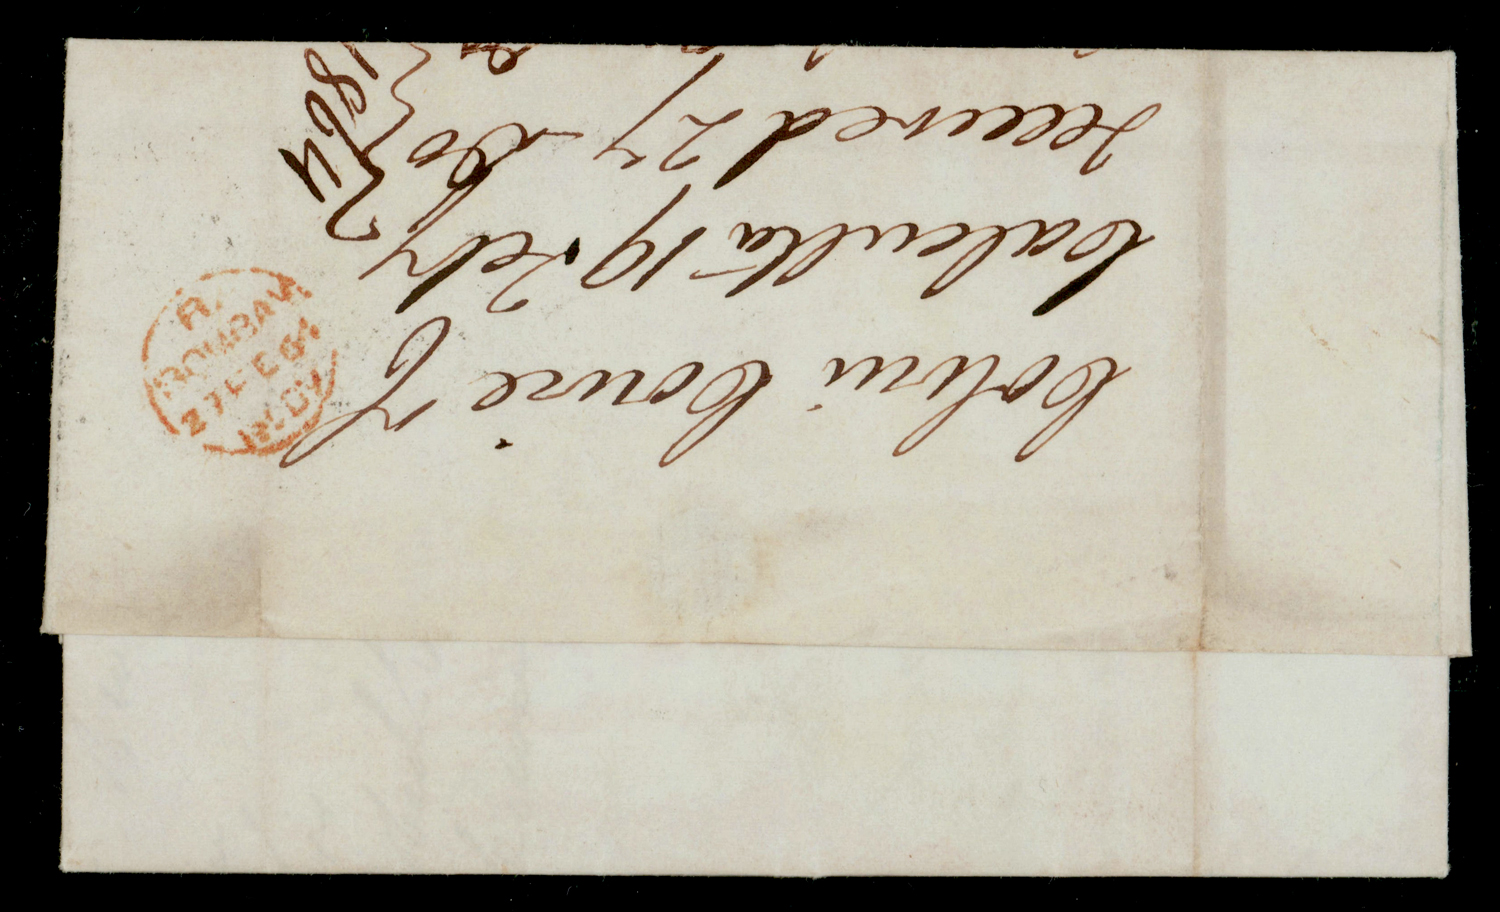 Colvin Cowie &
Calcutta 19 Feby
Received 27 Do
1864
R.
BOMBAY
27 FE 64